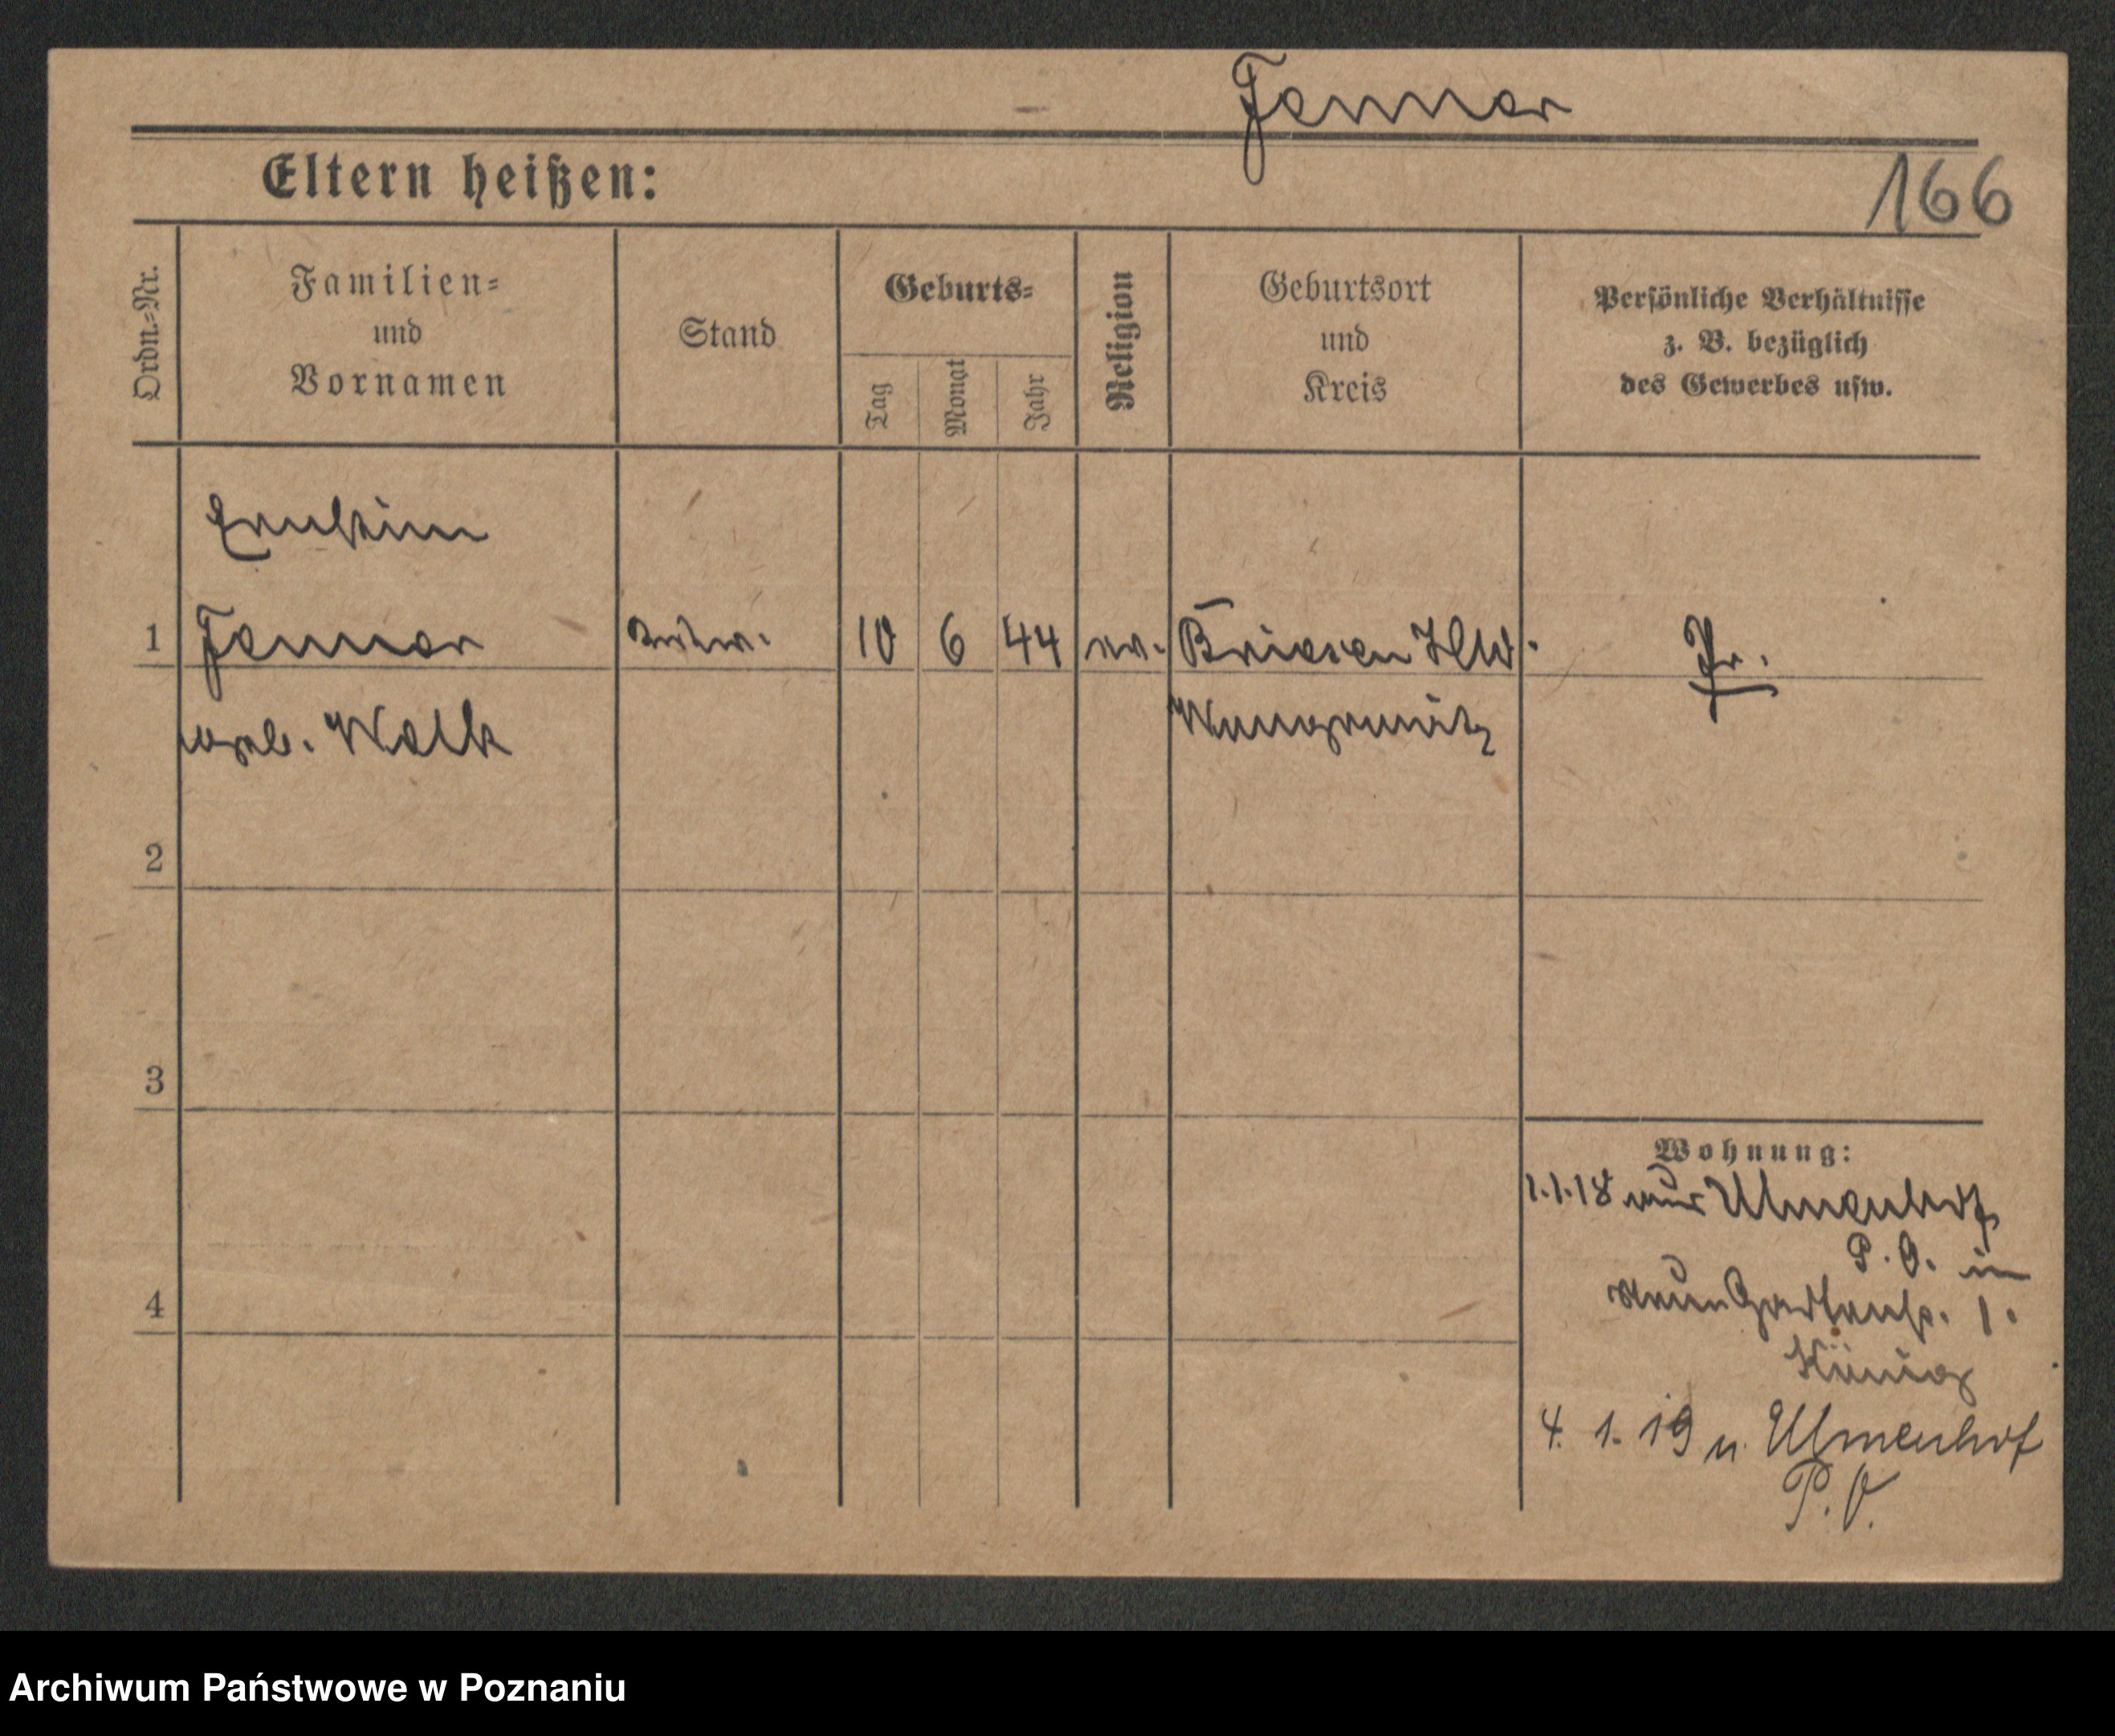 Jenner
Eltern heißen:
166
Ordn.-Nr.
Familien-
und
Vornamen
Stand
Geburts-
Tag
Monat
Jahr
Religion
Geburtsort
und
Kreis
Persönliche Verhältnisse
z. B. bezüglich
des Gewerbes usw.
Ernstine
1 Jenner 10 6 44 ev. Briesen
Pr.
geb. Wolk
Wongrowitz
2
3
4
Wohnung:
1.1.18 nur Ulmenhof
P. O. in
Gartenstr. 1.
König
4. 1. 19 n. Ulmenhof
P. O.
Archiwum Państwowe w Poznaniu